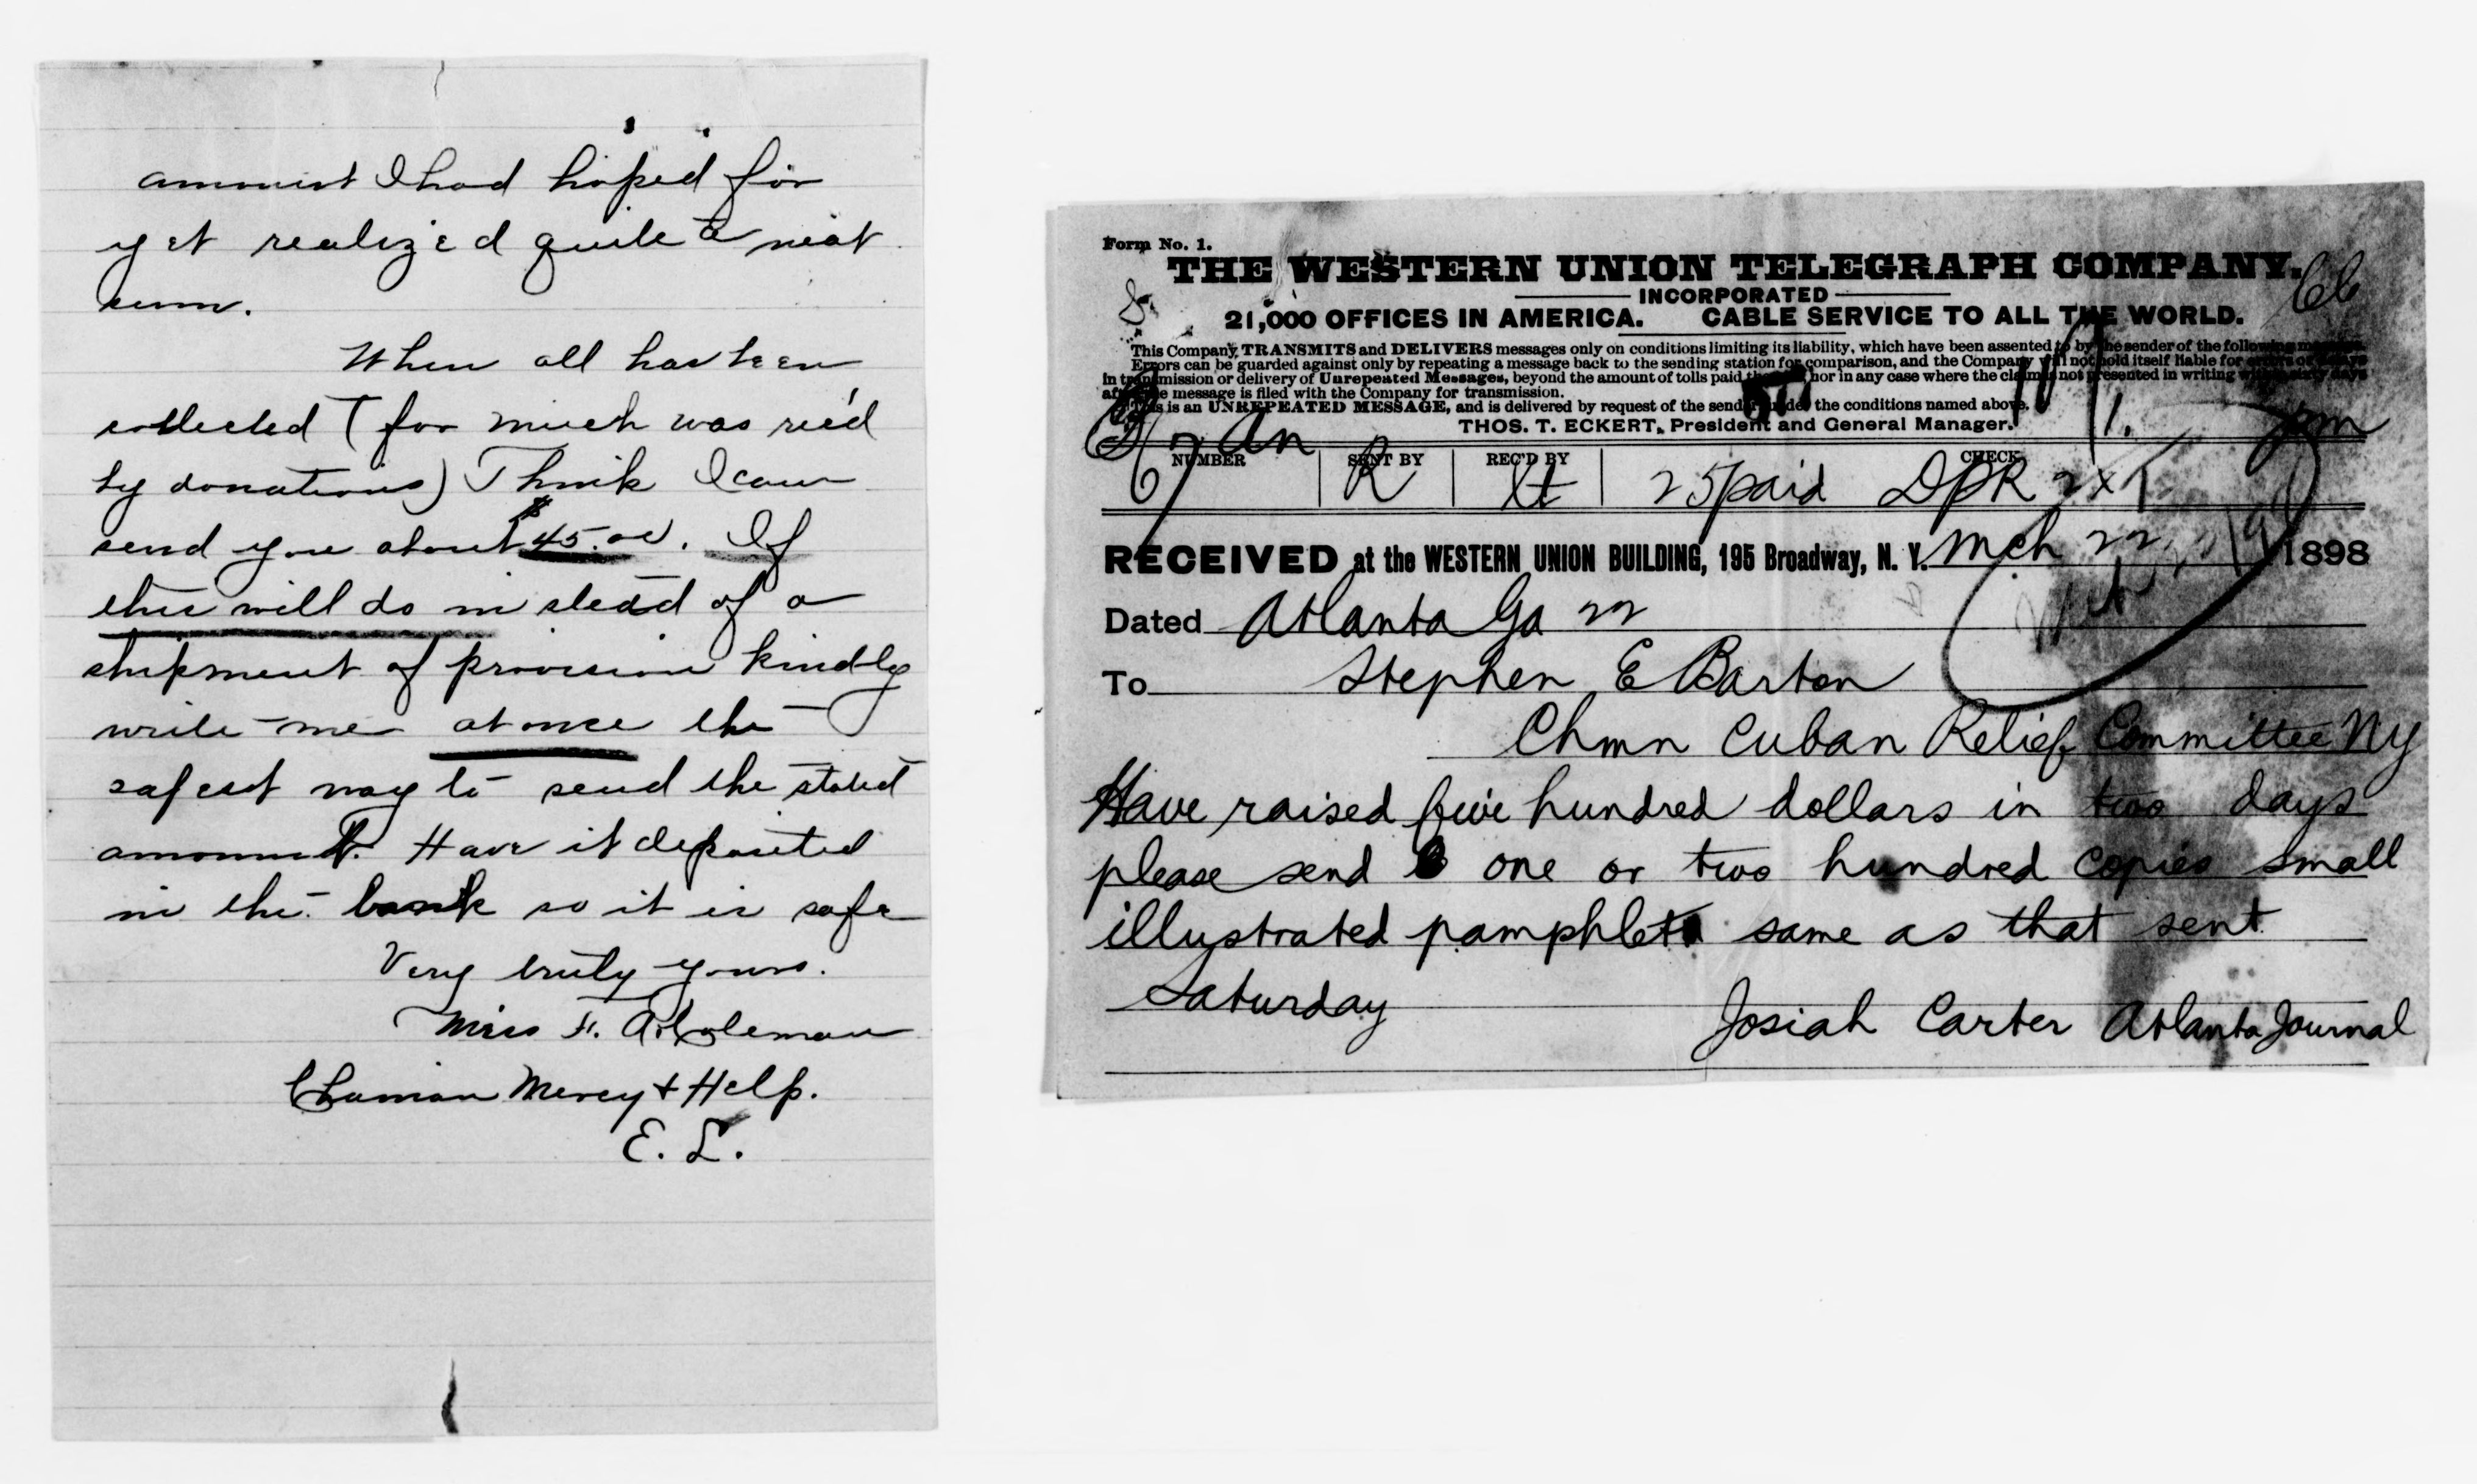 amount I had hoped for
yet realized quite a neat
sum.
When all has been
collected (for much was rec'd
by donations) Think I can
send you about $45.00. If
this will do in stead of a
shipment of provision kindly
write me at once the
safest way to send the stated
amount. Have it deposited
in the bank so it is safe
Very truly yours.
Miss F. A. Coleman
Chaiman Mercy + Help.
E. L.
Form No. 1.
THE WESTERN UNION TELEGRAPH COMPANY.
66
INCORPORATED
21,000 OFFICES IN AMERICA. CABLE SERVICE TO ALL THE WORLD.
This Company TRANSMITS and DELIVERS messages only on conditions limiting its liability, which have been assented to by the sender of the following message.
Errors can be guarded against only by repeating a message back to the sending station for comparison, and the Company will not hold itself liable for errors or delays
in transmission or delivery of Unrepeated Messages, beyond the amount of tolls paid thereon, nor in any case where the claim is not presented in writing within sixty days
after the message is filed with the Company for transmission.
This is an UNREPEATED MESSAGE, and is delivered by request of the sender, under the conditions named above.
THOS. T. ECKERT, President and General Manager.
NUMBER SENT BY REC'D BY CHECK
67 R 25 paid DPR
RECEIVED at the WESTERN UNION BUILDING, 195 Broadway, N. Y. Mch 22 1898
Dated Atlanta Ga 22
To Stephen E Barton
Chmn Cuban Relief Committee NY
Have raised five hundred dollars in two days
please send one or two hundred copies small
illustrated pamphlets same as that sent
Saturday
Josiah Carter Atlanta Journal